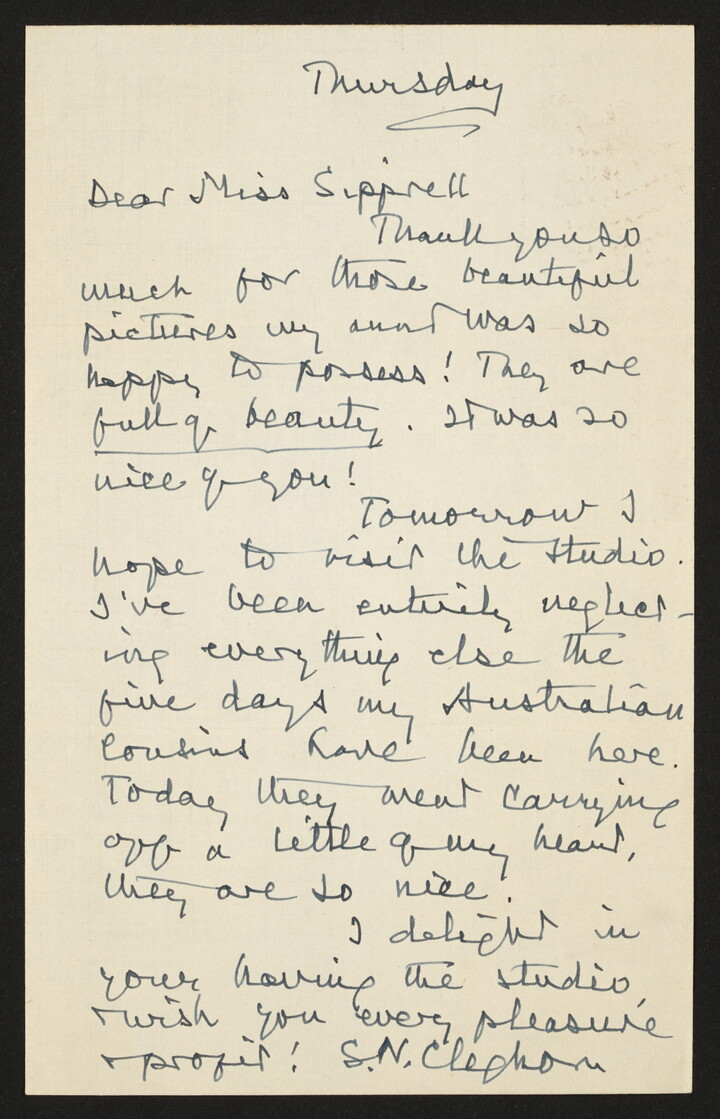 Thursday
Dear Miss Sipprell
Thank you so
much for those beautiful
pictures my aunt was so
happy to possess! They are
full of beauty. It was so
nice of you!
Tomorrow I
hope to visit the studio.
I've been entirely neglect-
ing everything else the
five days my Australian
cousins have been here.
Today they went carrying
off a little of my heart,
they are so nice.
I delight in
your having the studio,
+ wish you every pleasure
+ profit! S.N. Cleghorn